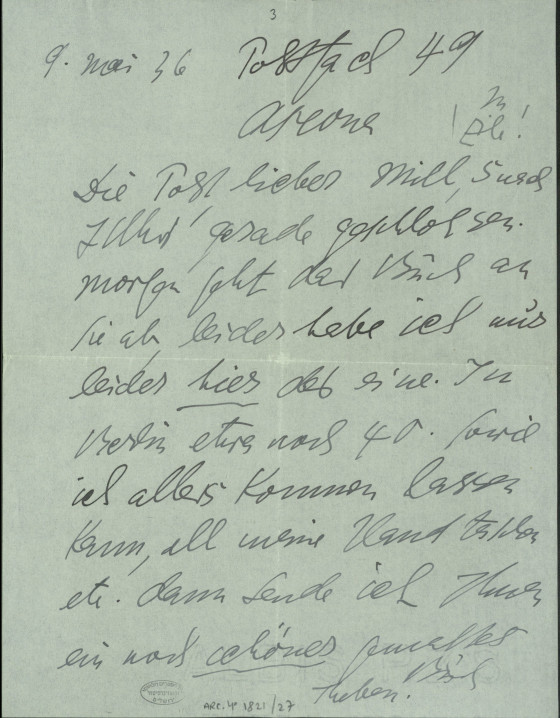 3
9. Mai 36 Postfach 49
Ascona
In
Eile!
Die Post lieber Mill,
gerade geschlossen.
morgen geht das Buch an
Sie ab, leider habe ich nur
leider hier das eine. In
Berlin etwa noch 40. Sowie
ich alles kommen lassen
kann, all meine Hand
etc. dann sende ich Ihnen
ein noch schönes gemaltes
Buch
ARC. 4° 1821/27